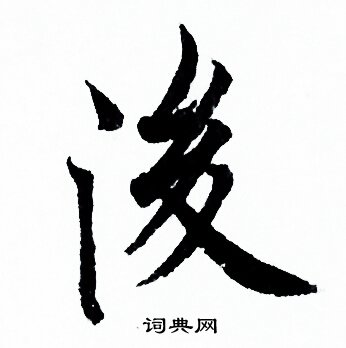 後
词典网